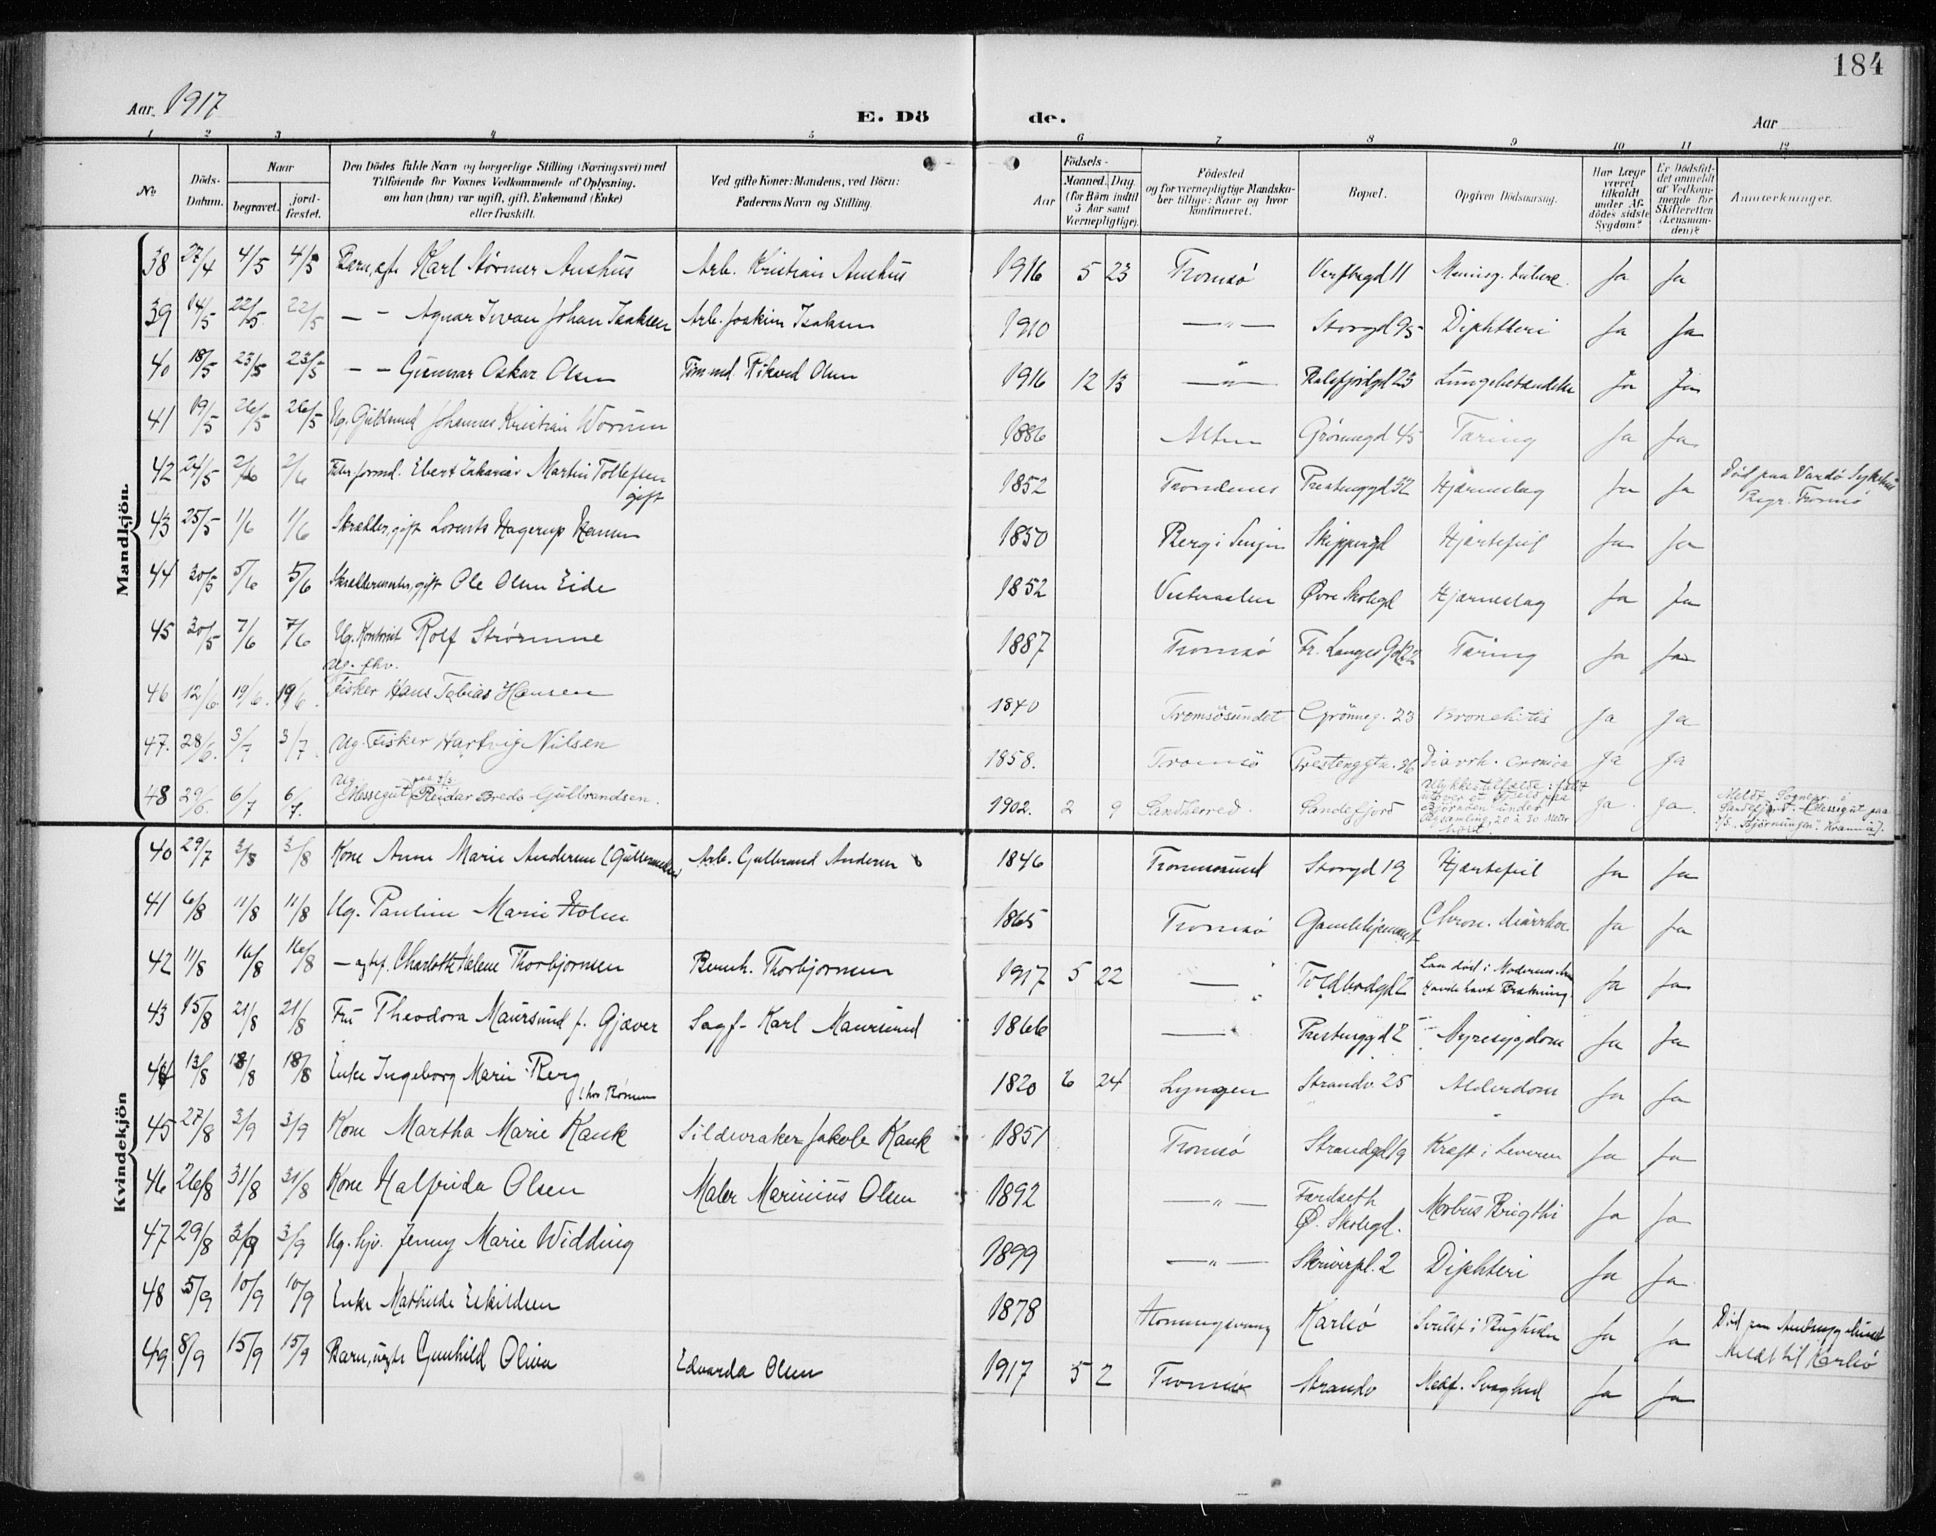 184
Aar 1917
E. Dö de.
Aar
1 2 3 4 5 6 7 8 9 10 11 12
No Döds-Datum. Naar begravet. jord-fæstet. Den Dödes fulde Navn og borgerlige Stilling (Næringsvei) med Tilföiende for Voxnes Vedkommende af Oplysning, om han (hun) var ugift, gift, Enkemand (Enke) eller fraskilt. Ved gifte Koner: Mandens, ved Börn: Faderens Navn og Stilling. Födsels- Aar Maaned. Dag (for Börn indtil 5 Aar samt Værnepligtige). Födested og for værnepligtige Mandskaber tillige: Naar og hvor konfirmeret. Bopæl. Opgiven Dödsaarsag. Har Læge været tilkaldt under Afdödes sidste Sygdom? Er Dödsfaldet anmeldt af Vedkommende for Skifteretten (Lensmanden)? Anmerkninger.
Mandkjön.
38 27/4 4/5 4/5 Barn, Karl Størmer Aushus Arb. Kristian Aushus 1916 5 23 Tromsö Verftsgd 11 Ja Ja
39 14/5 22/5 22/5 — - Agnar Ivan Johan Isaksen Arb. Joakim Isaksen 1910 — " — Storgd 95 Diphteri Ja Ja
40 18/5 23/5 23/5 — - Gunnar Oskar Olsen Olsen 1916 12 13 — " — Balsfjordgd 23 Lungebetændelse Ja Ja
41 19/5 26/5 26/5 Ug. Guldsmed Johannes Kristian Worum 1886 Alten Grønnegd 45 Tæring Ja Ja
42 24/5 2/6 2/6 Ebert Zakarias Martin Tollefsen gift 1852 Trondenes Prestenggd 32 Hjærneslag Ja Ja Död paa Vardö Sykehus Begr. Tromsö
43 25/5 1/6 1/6 Skrædder, gift Lorents Hagerup Hansen 1850 Berg i Senjen Skippergd Hjærtefeil Ja Ja
44 30/5 5/6 5/6 Skræddermester, gift Ole Olsen Eide 1852 Vesteraalen Øvre Skolegd Hjærneslag Ja Ja
45 30/5 7/6 7/6 Ug. Kontorist Rolf Strømme 1887 Tromsö Fr. Langes Gd 22 Tæring Ja Ja
46 12/6 19/6. 19/6. Ug. fhv. Fisker Hans Tobias Hansen 1840 Tromsösundet Grönneg. 23 Bronchitis Ja Ja
47. 28/6. 3/7 3/7. Ug. Fisker Hartvig Nilsen 1858. Tromsö Prestenggtn. 36 Diarrh. cronica Ja Ja
48 29/6. 6/7 6/7. Ug. Messegut paa S/S Reidar Bredo Gulbrandsen. 1902. 2 9 Sandeherred. Sandefjord Ulykkestilfælde: faldt utover et Fjeld paa Björnöen under Ægsamling, 20 à 30 Meter höit. Ja. Ja. Meldt Sognepr. i Sandefjord. Messegut paa S/S "Björnungen"
Kvindekjön
40 29/7 3/8 3/8 Kone Anne Marie Andersen Arb. Gulbrand Andersen 1846 Tromsösund Storgd 19 Hjærtefeil Ja Ja
41 6/8 11/8 11/8 Ug. Pauline Marie Holm 1865 Tromsö Gamlehjemmet Chron. diarrhoe Ja Ja
42 11/8 16/8 16/8 — Charlotte Helene Thorbjornsen Bernh. Thorbjornsen 1917 5 22 — " Toldbodgd 2 Laa död i Moderens Arm Havde havt Brækning. Ja Ja
43 15/8 21/8 21/8 Fru Theodora Maursund f. Gjæver Sagf. Karl Maursund 1866 — " — Prestenggd 2 Nyresygdom Ja Ja
44 13/8 18/8 18/8 Enke Ingeborg Marie Berg 1820 6 24 Lyngen Strandv. 25 Alderdom Ja Ja
45 27/8 3/9 3/9 Kone Martha Marie Kauk Sildevraker Jakob Kauk 1851 Tromsö Strandgd 19 Kræft i Leveren Ja Ja
46 26/8 31/8 31/8 Kone Halfrida Olsen Maler Marinius Olsen 1892 — " — Fardseth Ø. Skolegd. Morbus Brigthi Ja Ja
47 29/8 3/9 3/9 Ug. hjv. Jenny Marie Widding 1899 — " — Skriverpl. 2 Diphteri Ja Ja
48 5/9 10/9 10/9 Enke Mathilde Eskildsen 1878 Honningsvaag Karlsö Ja Ja Meldt til Karlsö
49 8/9 15/9 15/9 Barn, Gunhild Olsen Edvarda Olsen 1917 5 2 Tromsö Strandv Medf. Svaghed Ja Ja